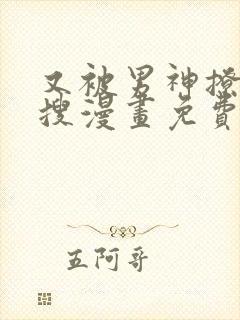 又被男神撩
搜漫畫免費
五阿哥